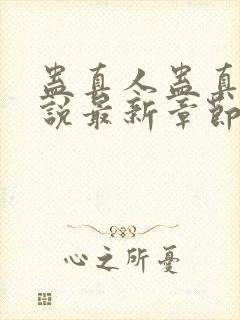 蛊真人蛊真
說最新章節
心之所憂